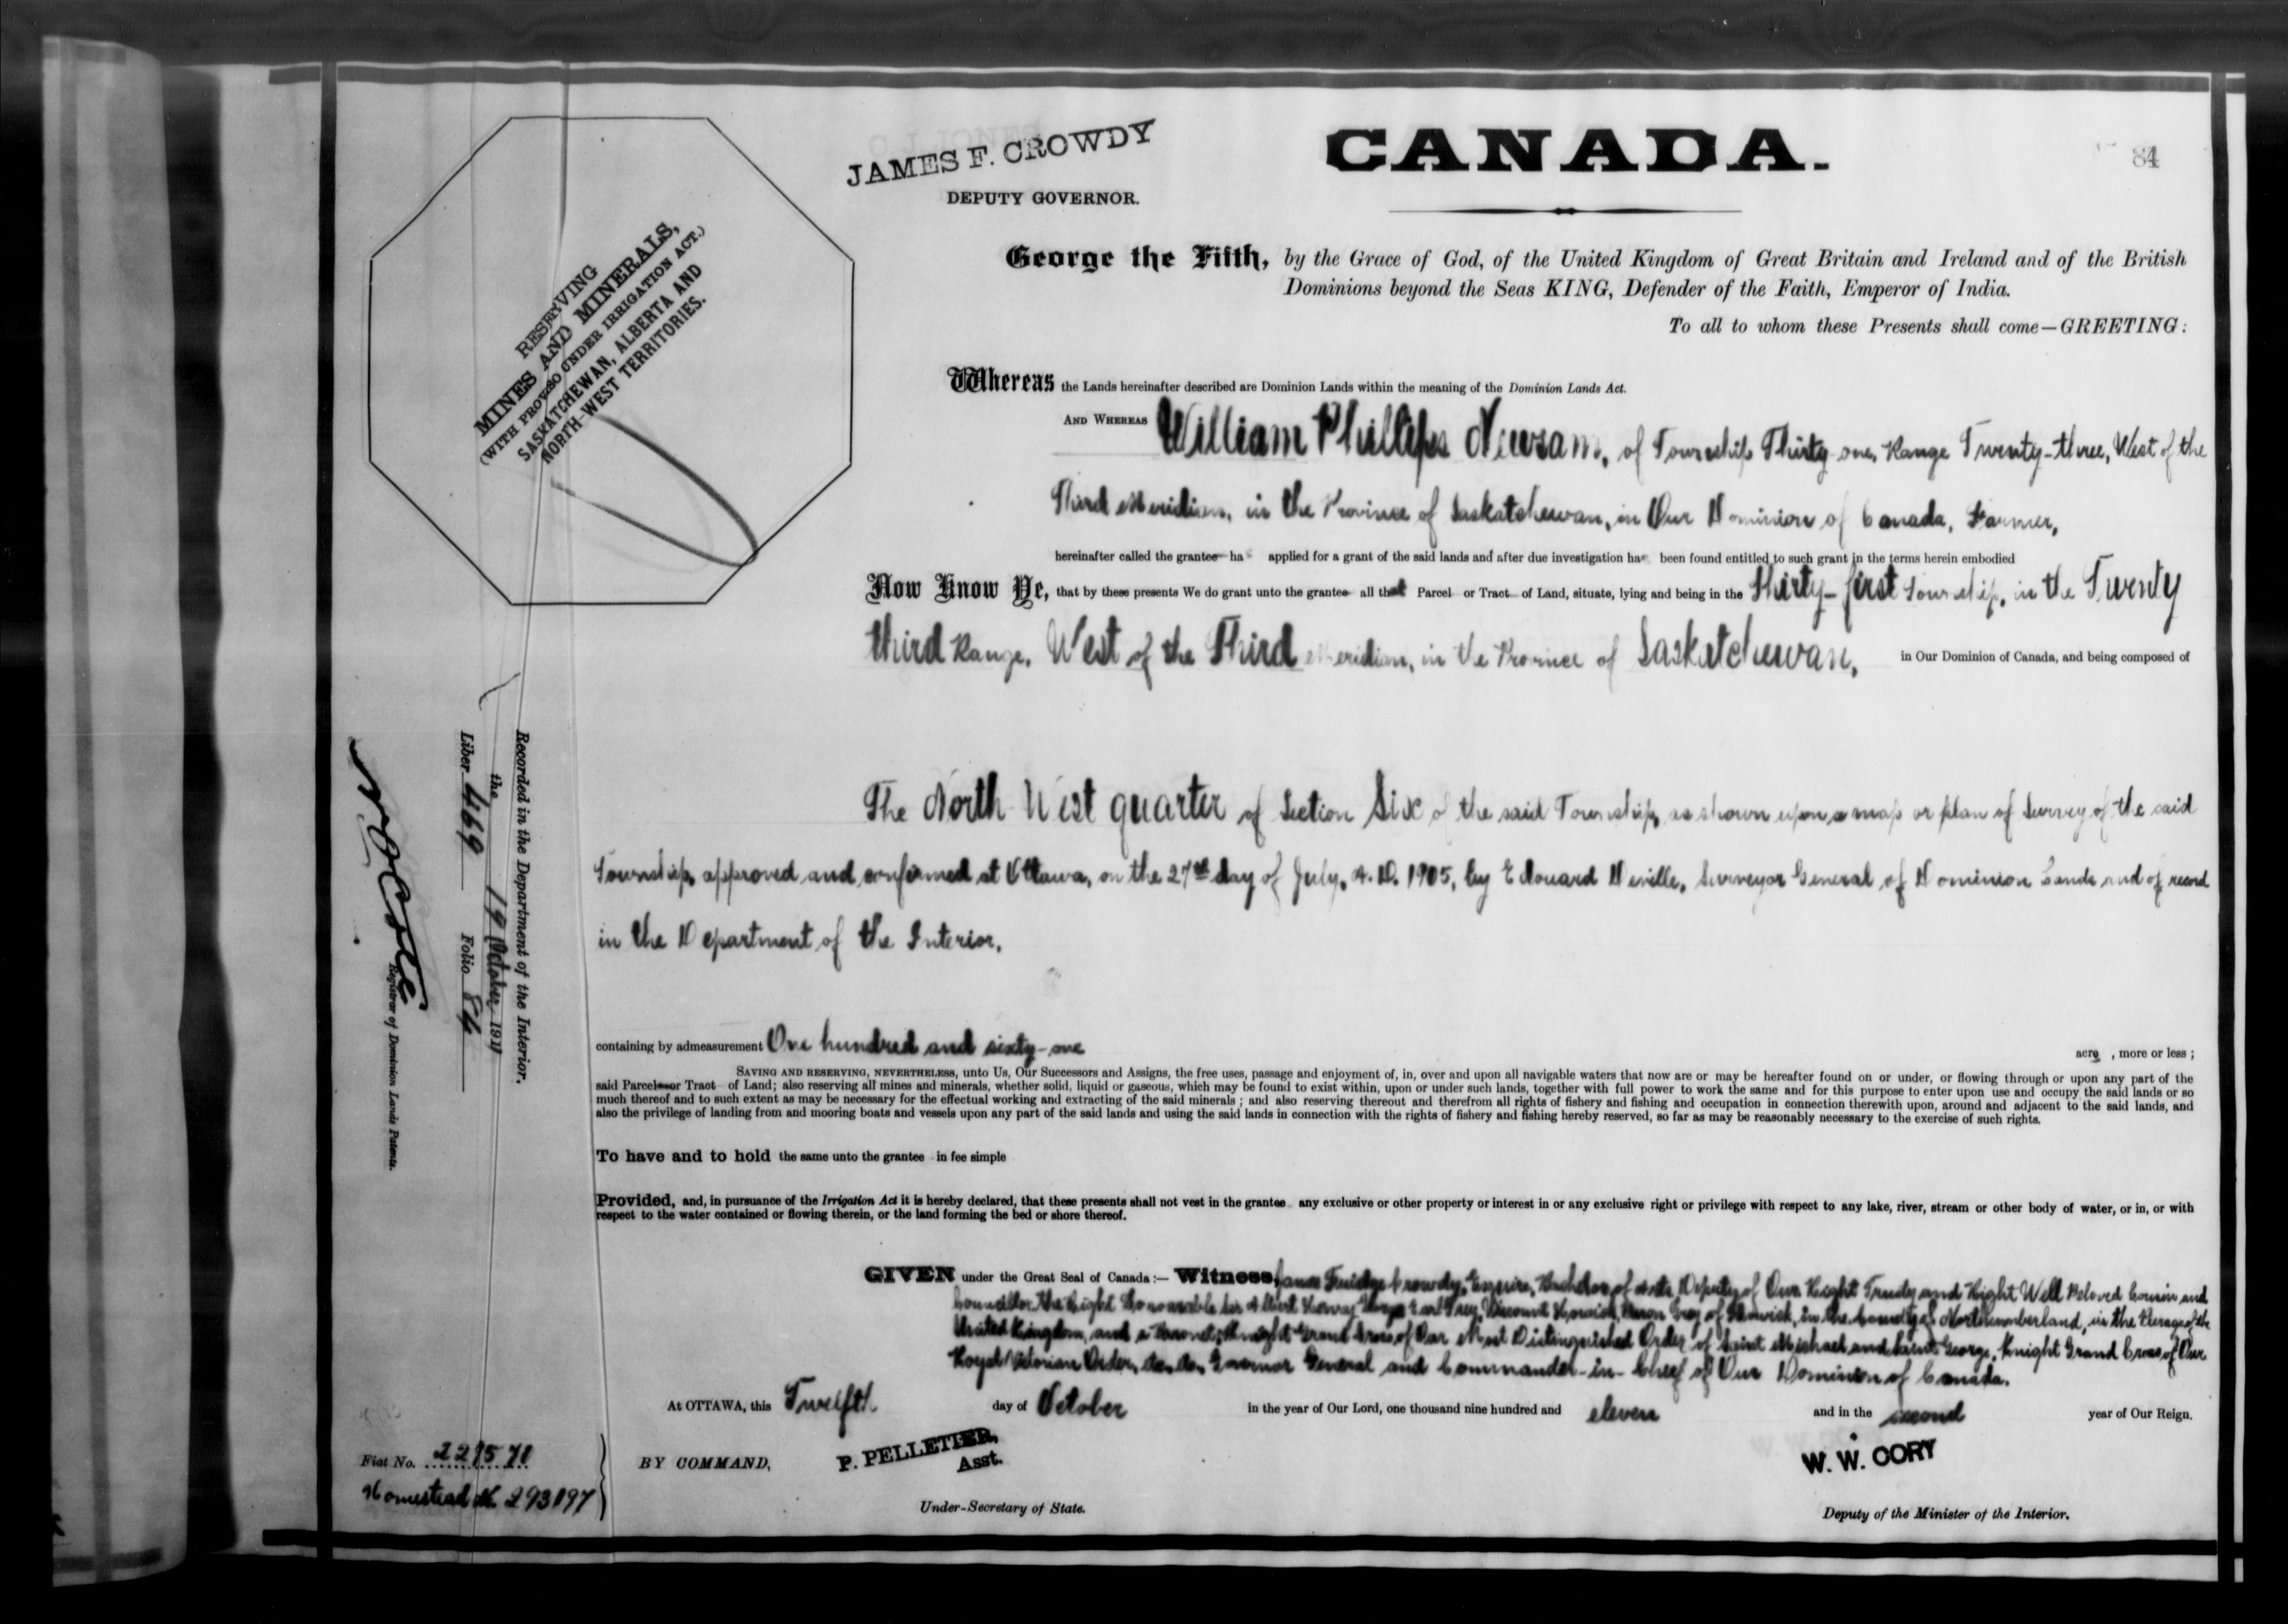 JAMES F. CROWDY
DEPUTY GOVERNOR.
CANADA.
84
RESERVING
MINES AND MINERALS,
(WITH PROVISO UNDER IRRIGATION ACT.)
SASKATCHEWAN, ALBERTA AND
NORTH-WEST TERRITORIES.
George the Fifth, by the Grace of God, of the United Kingdom of Great Britain and Ireland and of the British
Dominions beyond the Seas KING, Defender of the Faith, Emperor of India.
To all to whom these Presents shall come—GREETING:
Whereas the Lands hereinafter described are Dominion Lands within the meaning of the Dominion Lands Act.
AND WHEREAS William Phillips Newsam, of Township Thirty-one, Range Twenty-three, West of the
Third Meridian, in the Province of Saskatchewan, in Our Dominion of Canada, Farmer,
hereinafter called the grantee has applied for a grant of the said lands and after due investigation has been found entitled to such grant in the terms herein embodied
Now Know Ye, that by these presents We do grant unto the grantee all that Parcel or Tract of Land, situate, lying and being in the Thirty-first Township, in the Twenty
third Range, West of the Third Meridian, in the Province of Saskatchewan, in Our Dominion of Canada, and being composed of
The North West quarter of Section Six of the said Township, as shown upon a map or plan of Survey of the said
Township, approved and confirmed at Ottawa, on the 27th day of July, A.D. 1905, by Edouard Deville, Surveyor General of Dominion Lands and of record
in the Department of the Interior.
containing by admeasurement One hundred and sixty-one acre , more or less ;
SAVING AND RESERVING, NEVERTHELESS, unto Us, Our Successors and Assigns, the free uses, passage and enjoyment of, in, over and upon all navigable waters that now are or may be hereafter found on or under, or flowing through or upon any part of the
said Parcel or Tract of Land; also reserving all mines and minerals, whether solid, liquid or gaseous, which may be found to exist within, upon or under such lands, together with full power to work the same and for this purpose to enter upon use and occupy the said lands or so
much thereof and to such extent as may be necessary for the effectual working and extracting of the said minerals ; and also reserving thereout and therefrom all rights of fishery and fishing and occupation in connection therewith upon, around and adjacent to the said lands, and
also the privilege of landing from and mooring boats and vessels upon any part of the said lands and using the said lands in connection with the rights of fishery and fishing hereby reserved, so far as may be reasonably necessary to the exercise of such rights.
To have and to hold the same unto the grantee in fee simple
Provided, and, in pursuance of the Irrigation Act it is hereby declared, that these presents shall not vest in the grantee any exclusive or other property or interest in or any exclusive right or privilege with respect to any lake, river, stream or other body of water, or in, or with
respect to the water contained or flowing therein, or the land forming the bed or shore thereof.
GIVEN under the Great Seal of Canada:— Witness James Crowdy, Esquire, Bachelor of Arts, Deputy of Our Right Trusty and Right Well Beloved Cousin and
Councillor the Right Honourable Sir Albert Henry George Earl Grey, Viscount Howick, Baron Grey of Howick, in the County of Northumberland, in the Peerage of the
United Kingdom, and a Baronet; Knight Grand Cross of Our Most Distinguished Order of Saint Michael and Saint George, Knight Grand Cross of Our
Royal Victorian Order, &c., &c., Governor General and Commander-in-Chief of Our Dominion of Canada.
At OTTAWA, this Twelfth day of October in the year of Our Lord, one thousand nine hundred and eleven and in the second year of Our Reign.
BY COMMAND,
P. PELLETIER,
Asst.
Under-Secretary of State.
W. W. CORY
Deputy of the Minister of the Interior.
Recorded in the Department of the Interior.
the 19 October 1911
Liber 469 Folio 84
N O Coté
Registrar of Dominion Lands Patents.
Fiat No. 221571
Homestead No. 293197